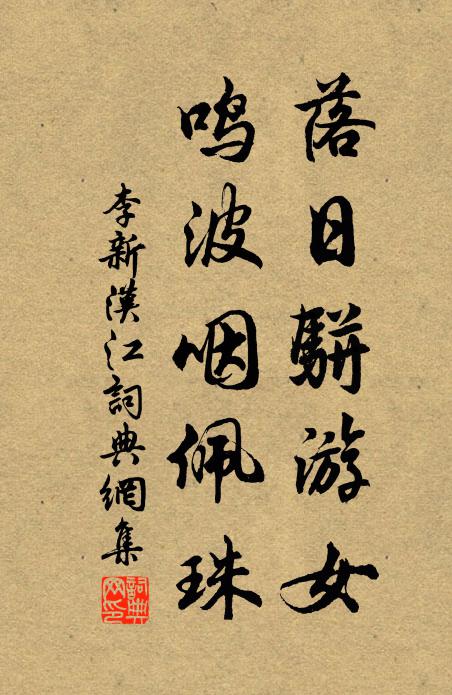 落日駢游女
鸣波咽佩珠
李新漢江詞典網集
詞典网印